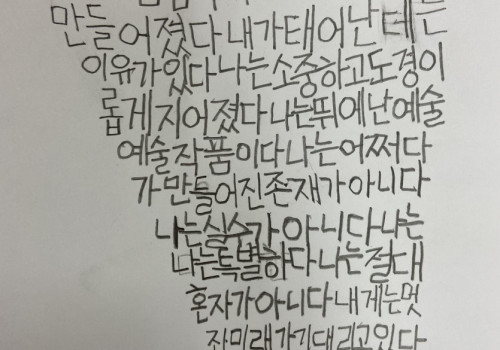 만들어졌다 내가태어난 테는
이유가있다나는소중하고도경이
롭게지어졌다나는뛰에난예술
예술작품이다나는어쩌다
가만들어진존재가아니다
나는실수가아니다나는
나는특별하다나는절대
혼자가아니다내게는멋
진미래가기대리고있다